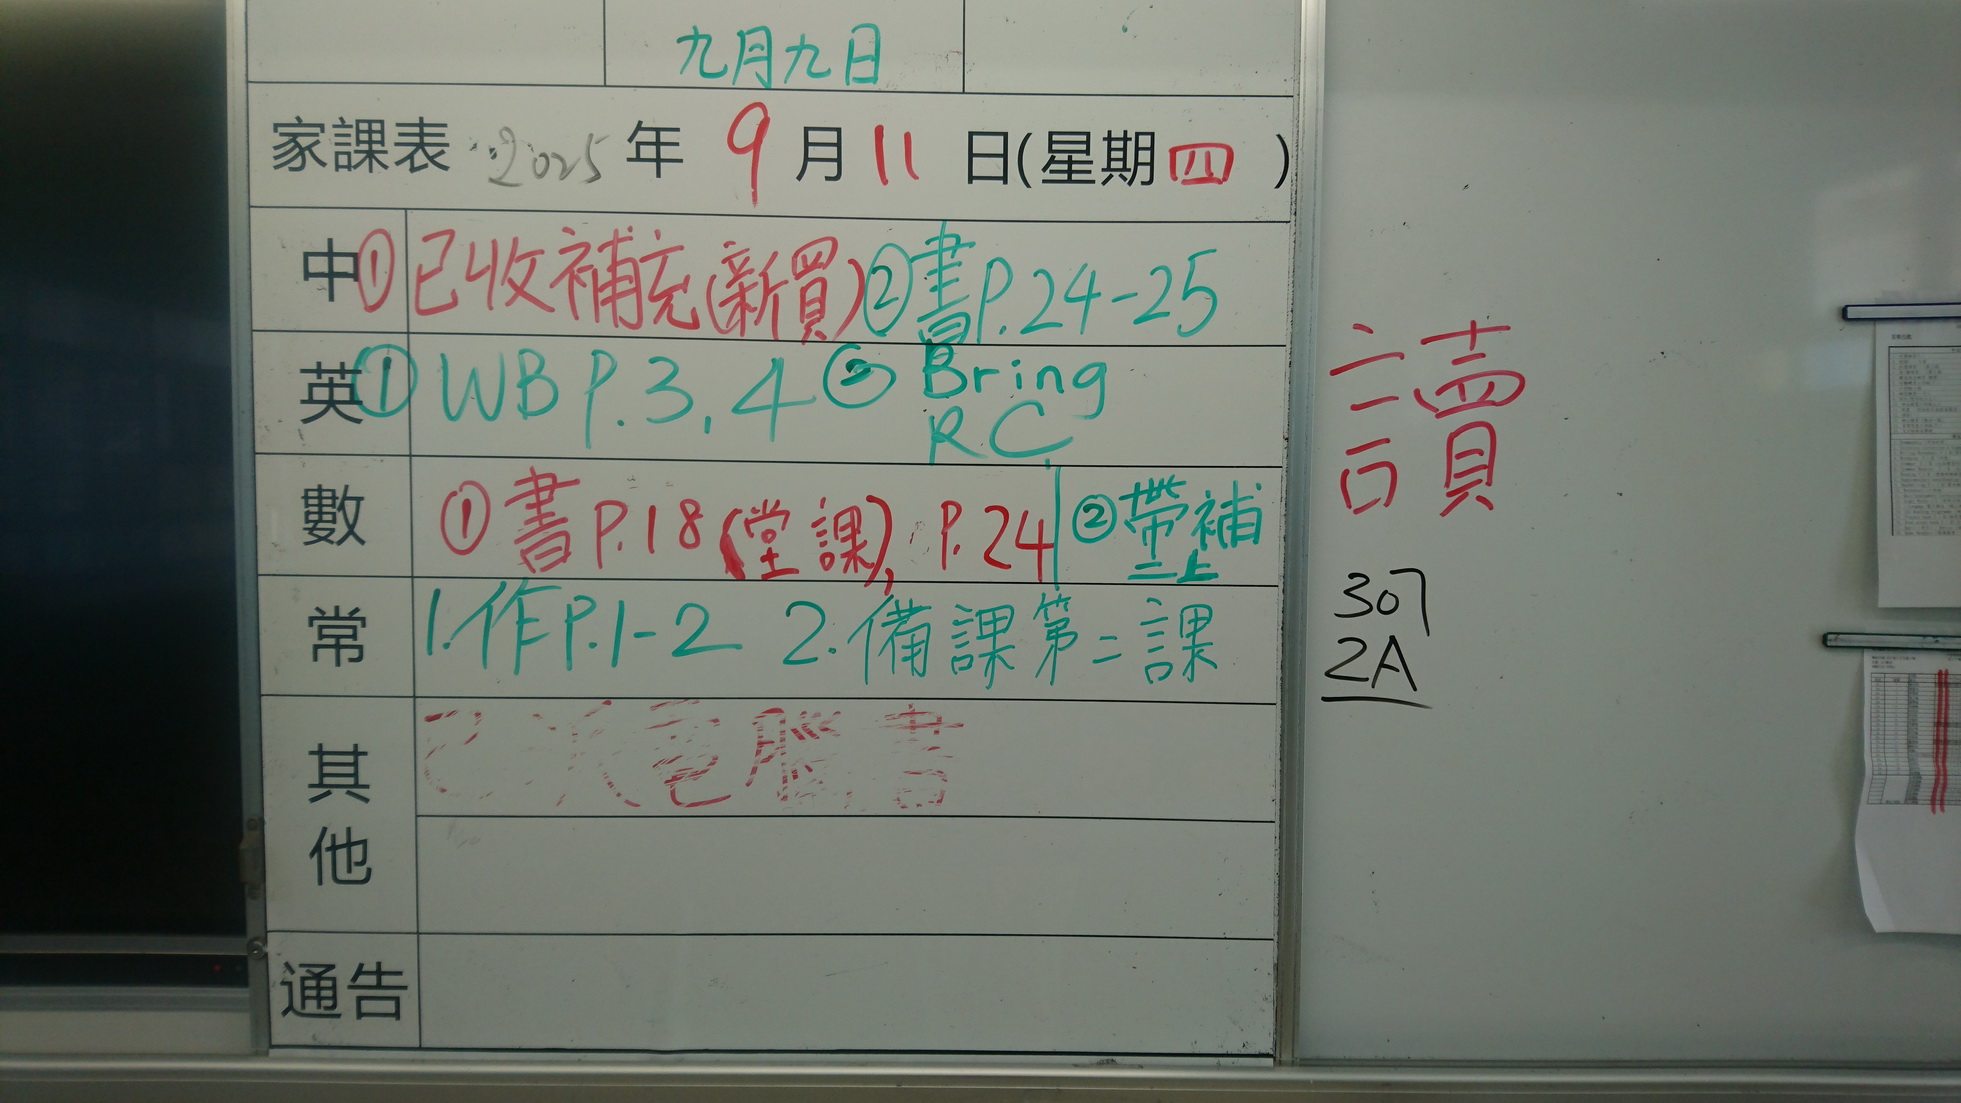 九月九日
家課表 2025 年 9 月 11 日(星期四)
中 ①已收補充(新買)②書P.24-25
英 ① WB P.3, 4 ② Bring
RC
數 ①書P.18(堂課), P.24 ②帶補
二上
常 1.作P.1-2 2.備課第二課
其他 電腦書
通告
讀
307
2A